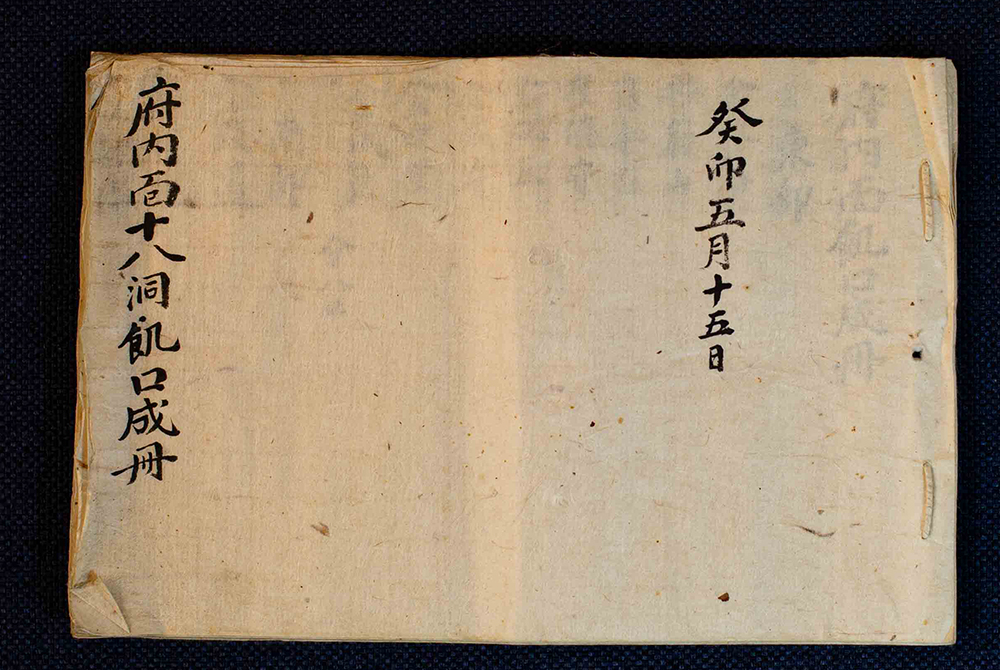 癸卯五月十五日
府内面十八洞飢口成冊